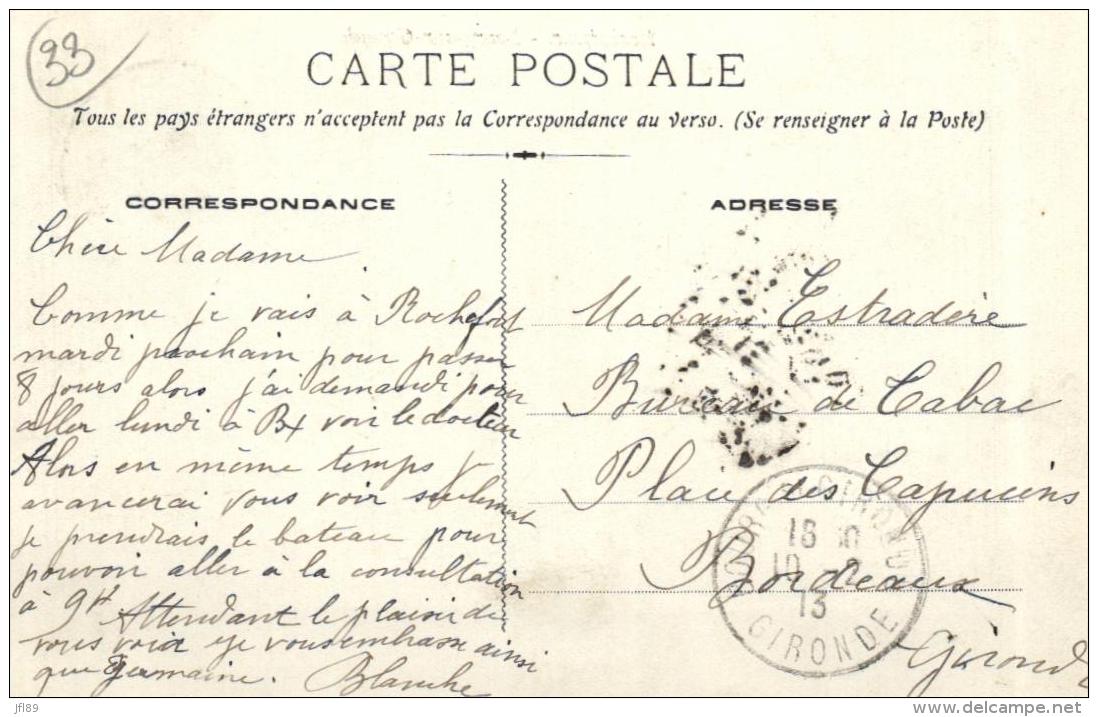 33
CARTE POSTALE
Tous les pays étrangers n'acceptent pas la Correspondance au verso. (Se renseigner à la Poste)
CORRESPONDANCE
Chère Madame
Comme je vais à Rochefort
mardi prochain pour passer
8 jours alors j'ai demandi pour
aller lundi à Bx voir le docteur
Alors en même temps j
avancerai vous voir seulement
je prendrais le bateau pour
pouvoir aller à la consultation
à 9H Attendant le plaisir de
vous voir je vous embrasse ainsi
que Germaine. Blanche
ADRESSE
Madame Estradère
Bureau de Tabac
Place des Capucins
Bordeaux
Gironde
18
13
GIRONDE
jfl89
© delcampe.net